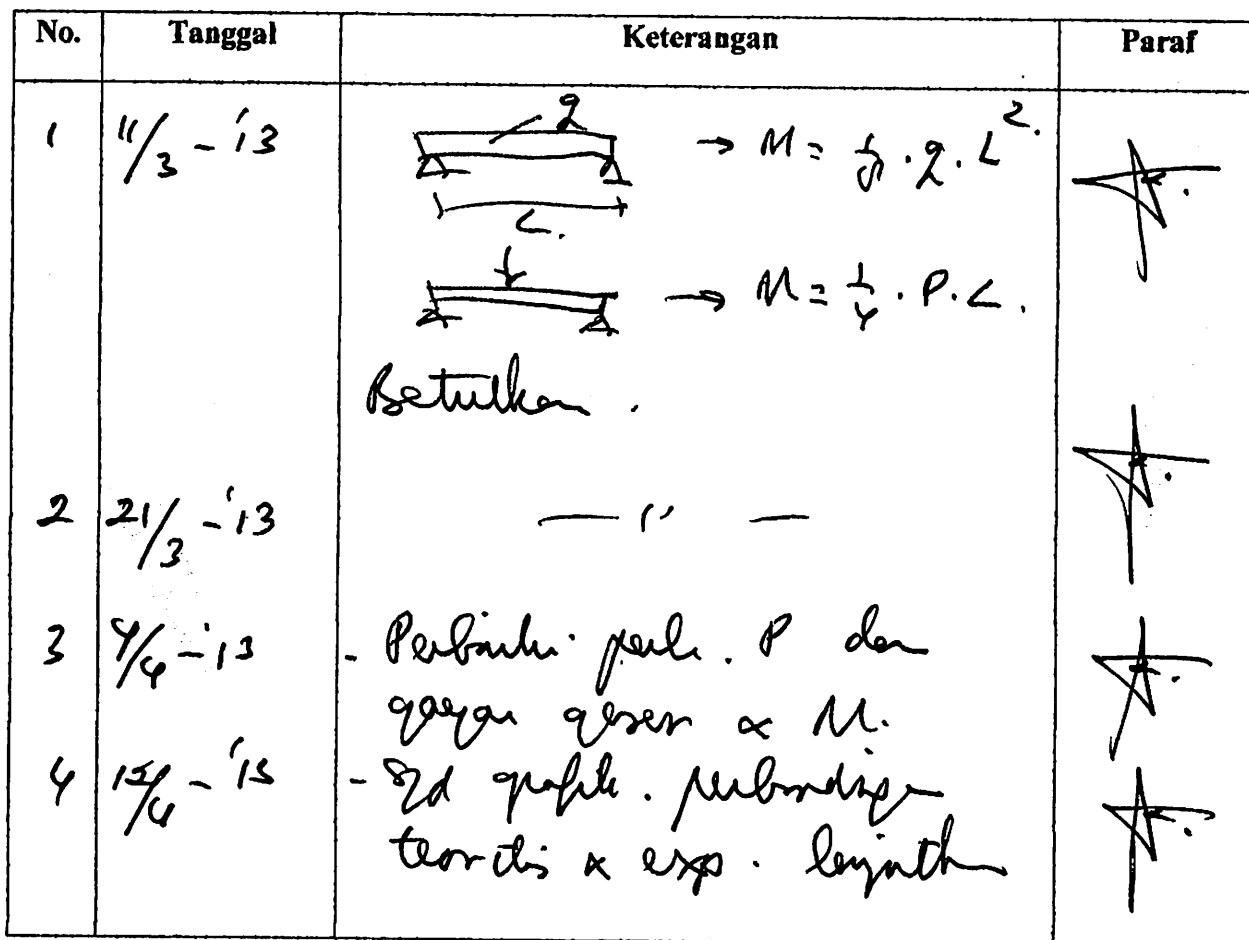 No. Tanggal Keterangan Paraf
1 11/3 - '13 q → M = 1/8 . q . L².
L.
→ M = 1/4 . P . L.
Betulkan.
2 21/3 - '13 — " —
3 4/4 - '13 - Perbaiki perh. P dan
gaya geser & M.
4 15/4 - '13 - S/d grafik. perbandingan
teoritis & exp. lanjutkan